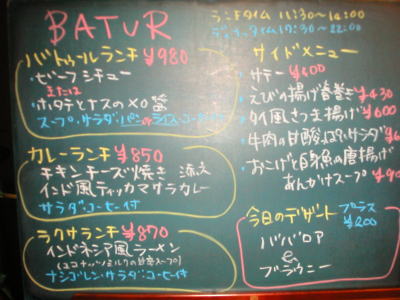 BATUR
ランチタイム 11:30〜14:00
ディナータイム17:30〜22:00
バトゥールランチ ¥980
・ビーフシチュー
または
・ホタテとナスのXO醤
スープ・サラダ・パンorライス・コーヒー付
カレーランチ ¥850
チキンチーズ焼き 添え
インド風ティッカマサラカレー
サラダ・コーヒー付
ラクサランチ ¥870
インドネシア風ラーメン
(ココナッツミルクの甘辛スープ)
ナシゴレン・サラダ・コーヒー付
サイドメニュー
・サテー ¥600
・えびの揚げ春巻き ¥430
・タイ風さつま揚げ ¥600
・牛肉の甘酸っぱいサラダ
・おこげと白身魚の唐揚げ
あんかけスープ
今日のデザート プラス ¥200
ババロア
&
ブラウニー